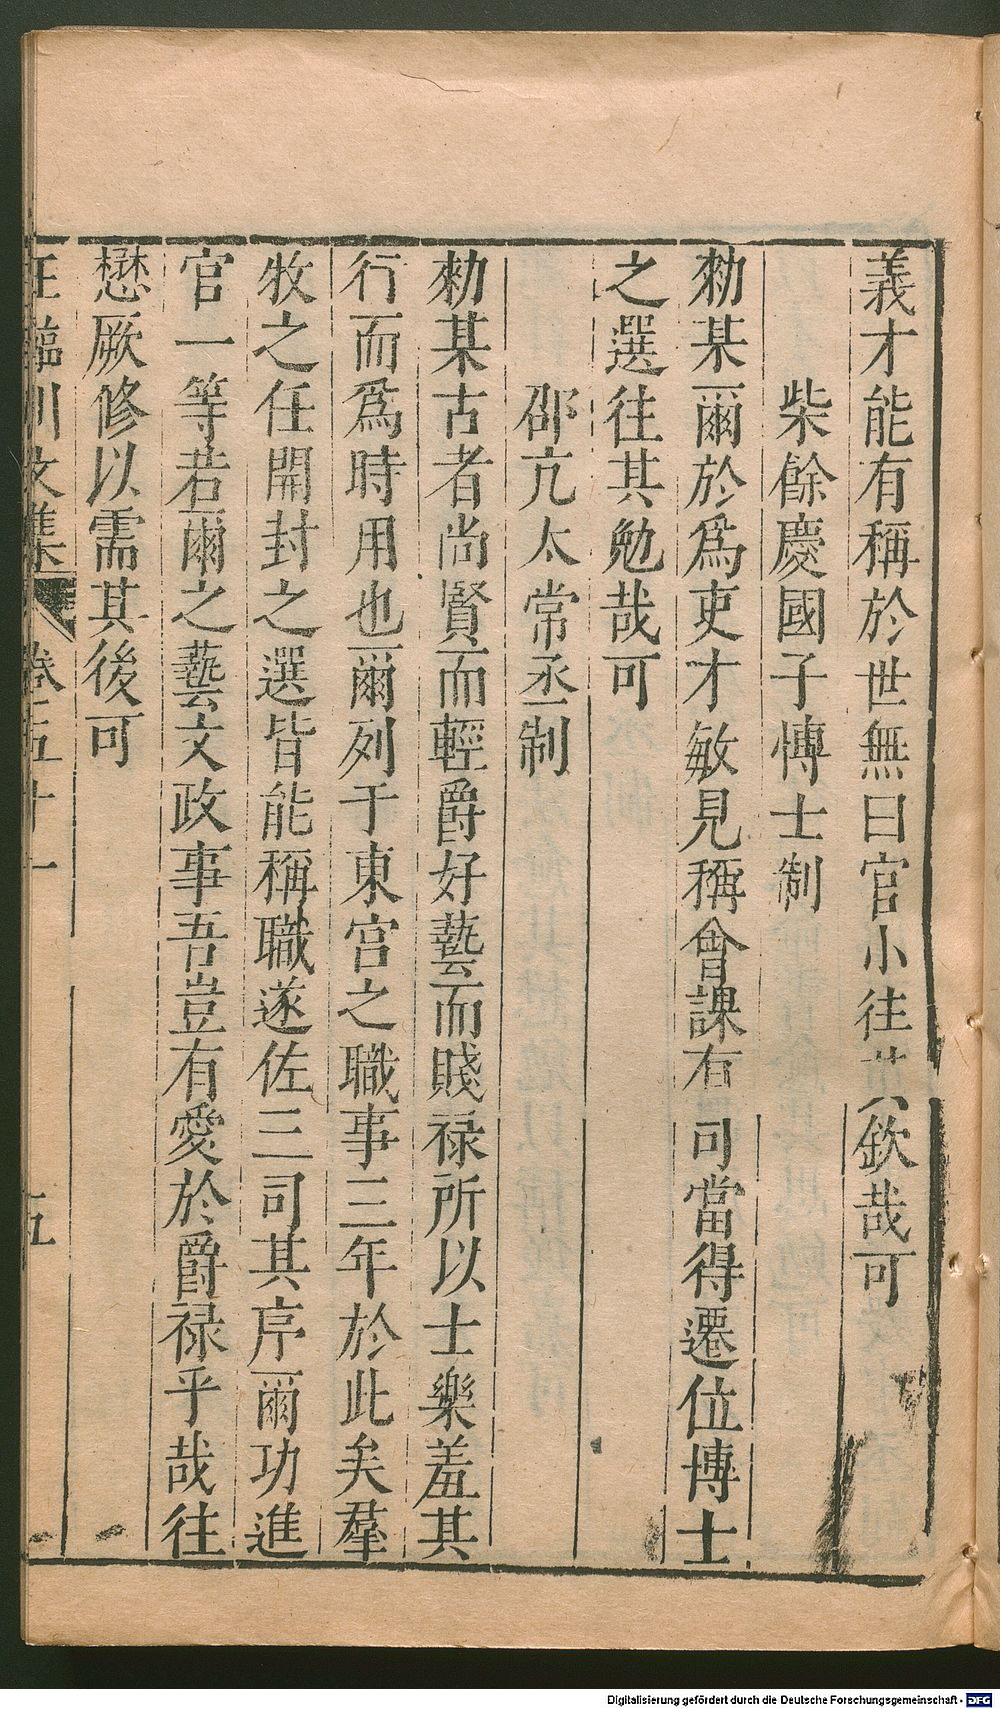 義才能有稱於世無曰官小往其欽哉可
柴餘慶國子博士制
勑某爾於爲吏才敏見稱會課有司當得遷位博士
之選往其勉哉可
邵亢太常丞制
勑某古者尚賢而輕爵好藝而賤祿所以士樂羞其
行而爲時用也爾列于東宮之職事三年於此矣羣
牧之任開封之選皆能稱職遂佐三司其序爾功進
官一等若爾之藝文政事吾豈有愛於爵祿乎哉往
懋厥修以需其後可
王臨川文集 卷五十一 五
Digitalisierung gefördert durch die Deutsche Forschungsgemeinschaft - DFG